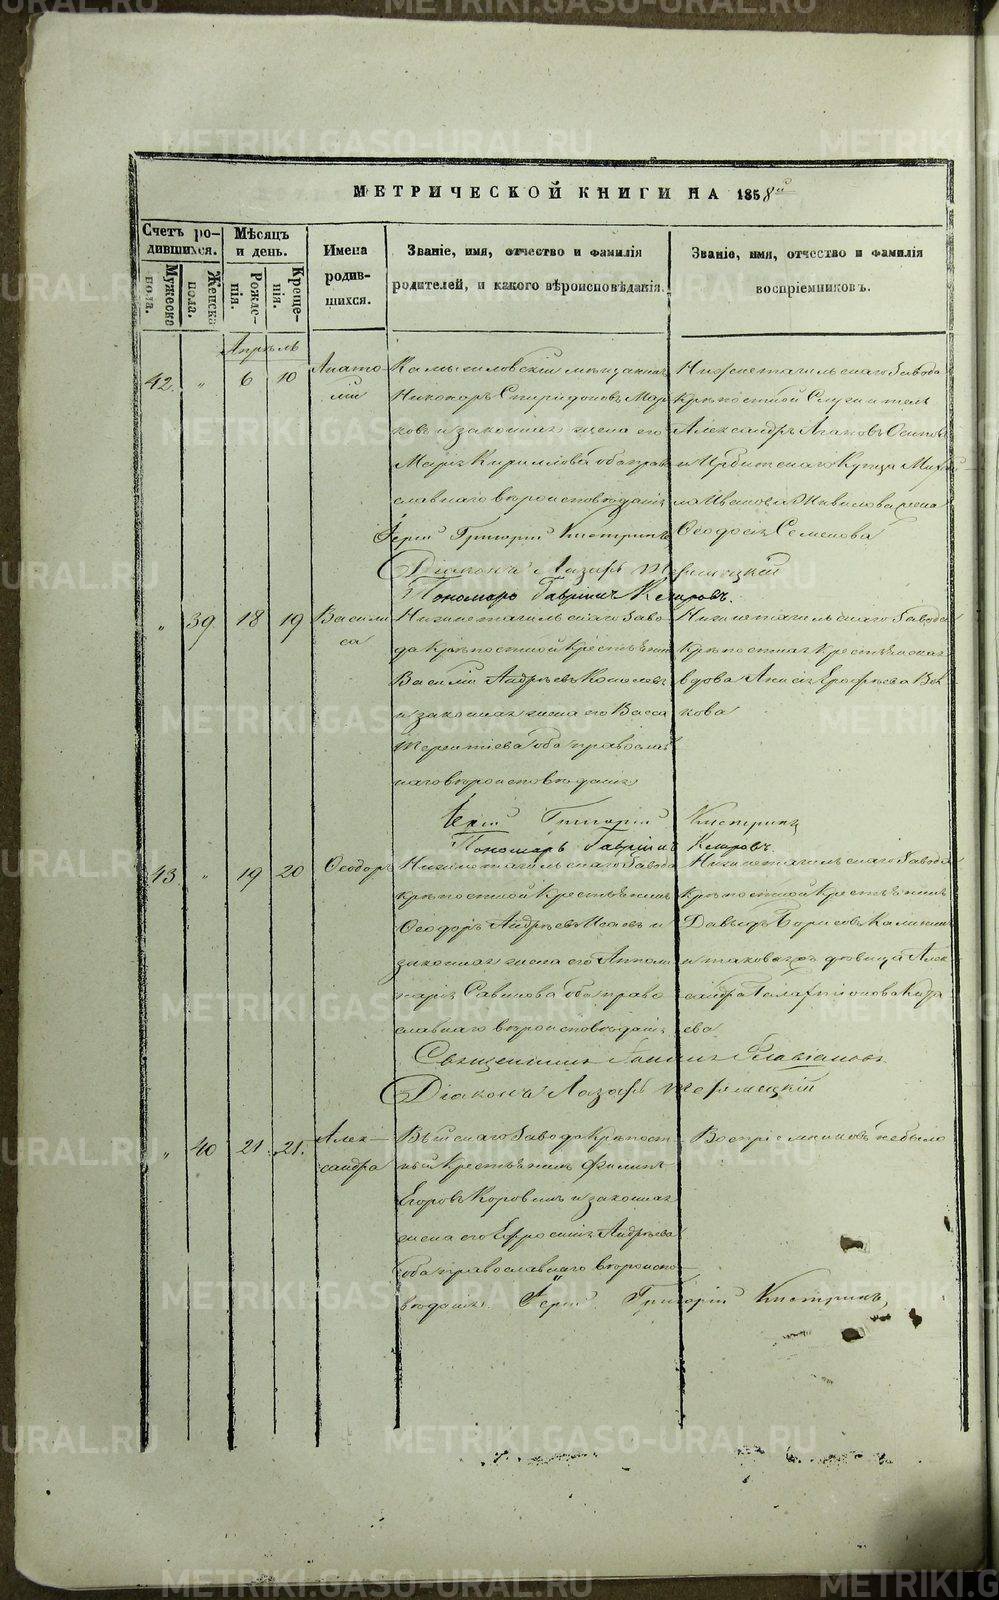 МЕТРИЧЕСКОЙ КНИГИ НА 1858й
Счетъ ро-
дившихся.
Мѣсяцъ
и день.
Имена
родив-
шихся.
Званіе, имя, отчество и фамилія
родителей, и какого вѣроисповѣданія.
Званіе, имя, отчество и фамилія
воспріемниковъ.
Мужеска
пола.
Женска
пола.
Рожде-
нія.
Креще-
нія.
Апрѣль
42. " 6 10
Анато-
лій
Камышловскій мѣщанинъ
Никоноръ Спиридоновъ Мар-
ковъ и законная жена его
Марія Кириллова оба право-
славнаго вѣроисповѣданія
Нижнетагильскаго Завода
крѣпостной Служитель
Александръ Агаповъ Осиповъ
и Ирбитскаго Купца
Иванова жена
Ѳеодосія Семенова
Іерей Григорій
Діаконъ Лазарь
Пономарь Гавріилъ
" 39 18 19
Васили-
са
Нижнетагильскаго Заво-
да Крѣпостной Крестьянинъ
Василій Андрѣевъ
и законная жена его Васса
Терентіева оба православ-
наго вѣроисповѣданія
Нижнетагильскаго Завода
крѣпостная крестьянская
вдова Анисія Ерофѣева Вол-
кова
Іерей Григорій
Пономарь Гавріилъ
43. " 19 20
Ѳеодоръ
Нижнетагильскаго Завода
крѣпостной Крестьянинъ
Ѳеодоръ Андрѣевъ Исаевъ и
законная жена его Аполи-
нарія Савинова оба право-
славнаго вѣроисповѣданія
Нижнетагильскаго Завода
крѣпостной Крестьянинъ
Давыдъ Борисовъ Калининъ
и таковаго дѣвица Алек-
сандра
ева
Священникъ
Діаконъ Лазарь
" 40 21 21.
Алек-
сандра
Выйскаго Завода Крѣпост-
ный Крестьянинъ Филипъ
Егоровъ Коровинъ и законная
жена его Ефросинія Андрѣева
оба православнаго вѣроиспо-
вѣданія. Іерей Григорій
Воспріемниковъ небыло
METRIKI.GASO-URAL.RU